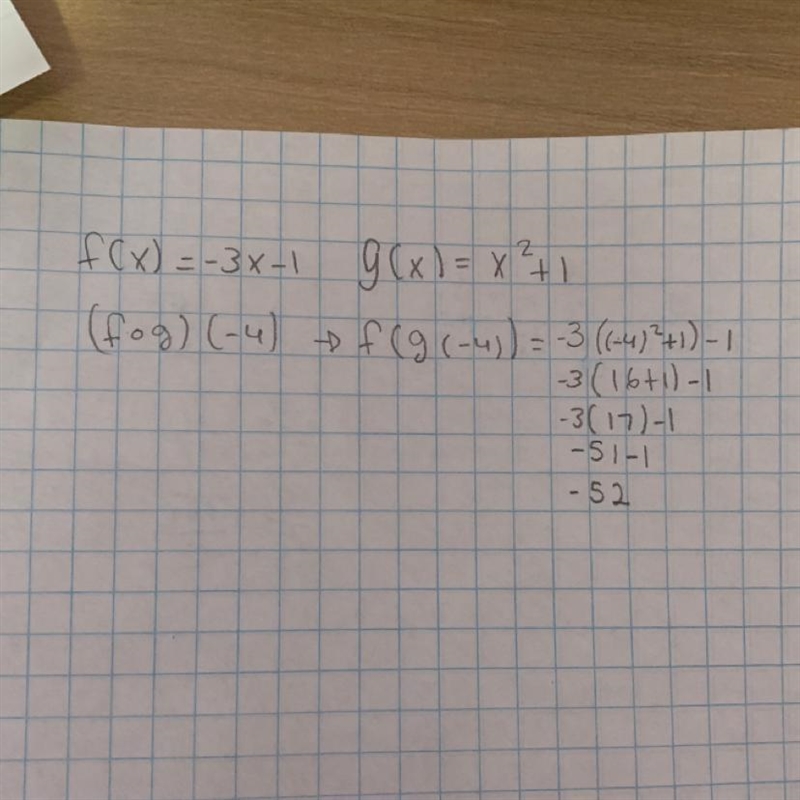 f(x) = -3x-1 g(x) = x²+1
(fog)(-4) → f(g(-4)) = -3((-4)²+1)-1
-3(16+1)-1
-3(17)-1
-51-1
-52